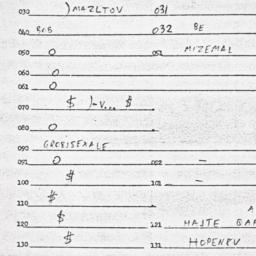 030 ) MAZLTOV 031
040 BCB 032 BE
050 O 051 MIZEMAL
060 O
061 O
070 $ )-v... $
080 O
090 GROBISEXALE
091 O 092 —
100 $ 101 —
110 $
120 $ 121 HAJTE
130 $ 131 HOPENKU